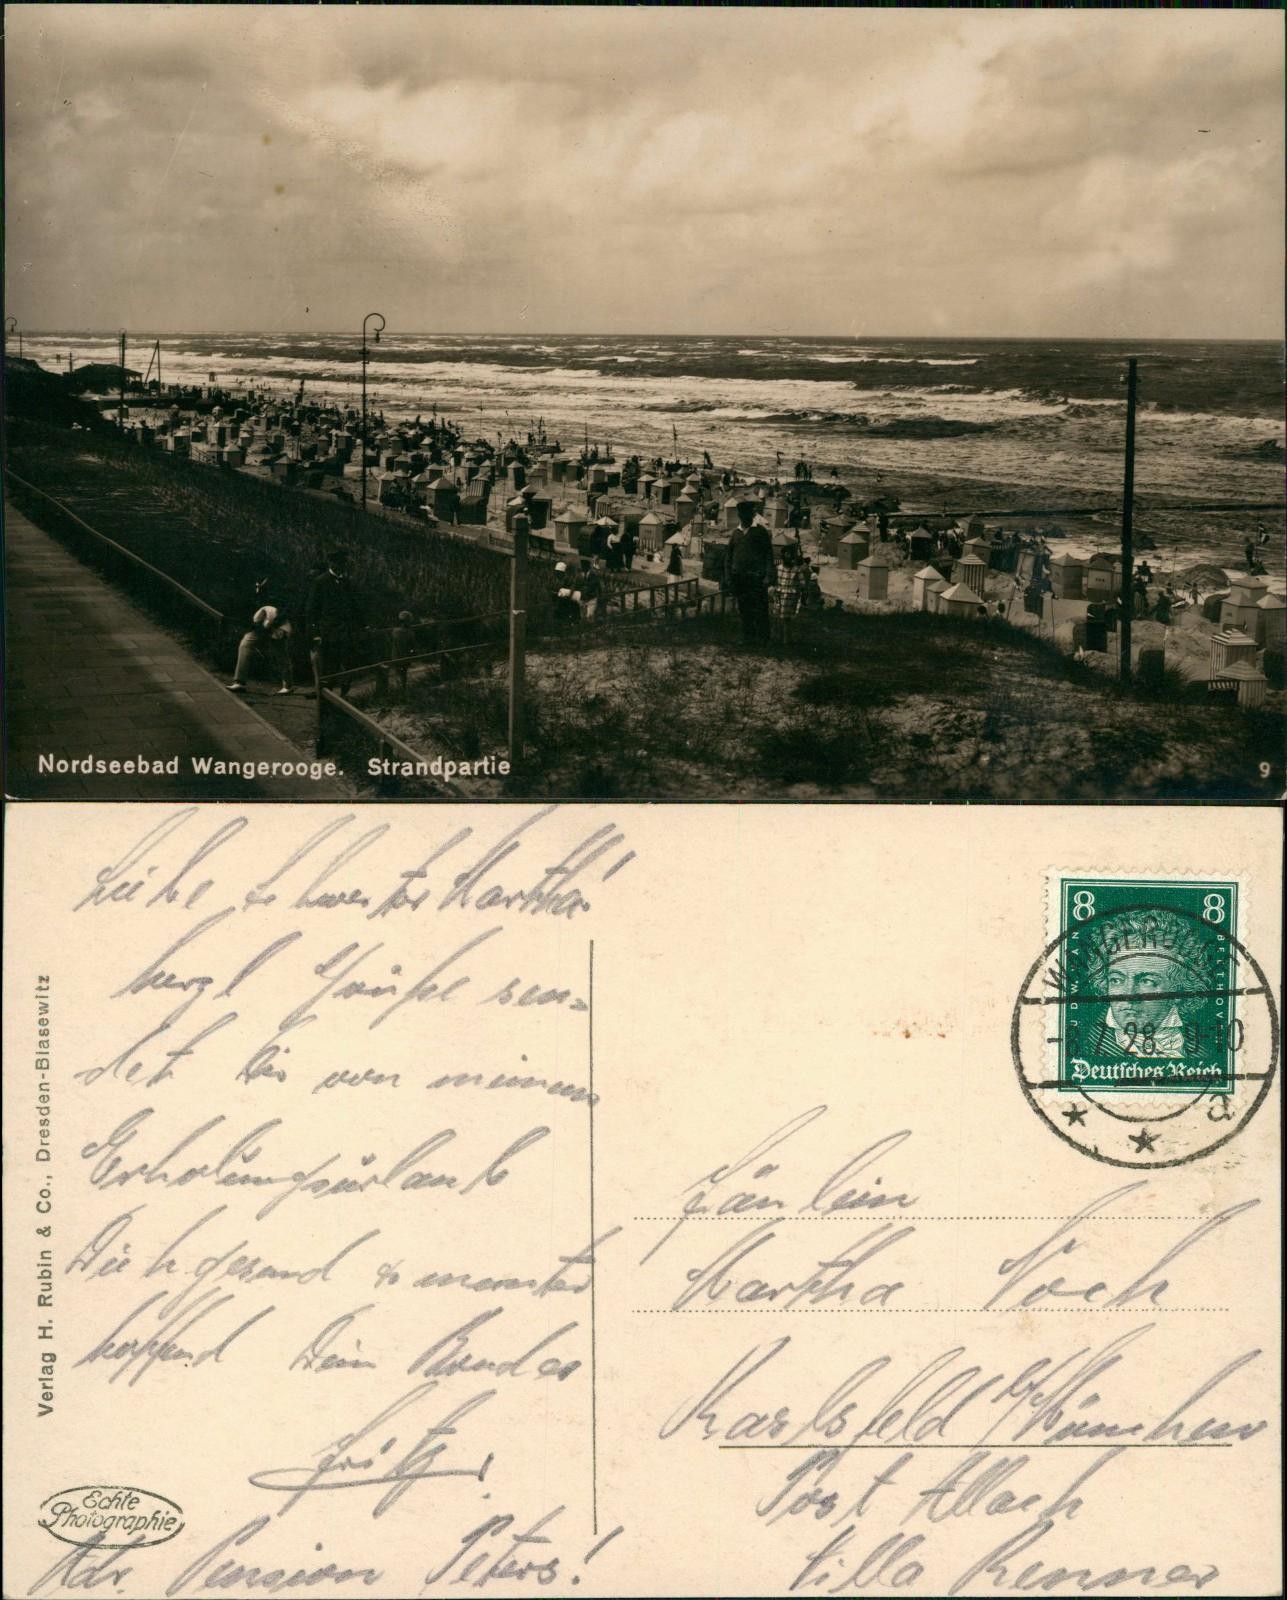 Nordseebad Wangerooge. Strandpartie
9
Liebe Schwester Martha!
herzl Grüße sen=
det Dir von meinem
Erholungsurlaub
Dich gesund & munter
hoffend Dein Bruder
Fritz.
Adr. Pension Peters!
Verlag H. Rubin & Co., Dresden-Blasewitz
Echte
Photographie
8 8
LUDW. VAN BEETHOVEN
Deutsches Reich
WANGEROOGE
7.28. 9-10
* * a
Fräulein
Martha Koch
Karlsfeld b/München
Post Allach
Villa Renner